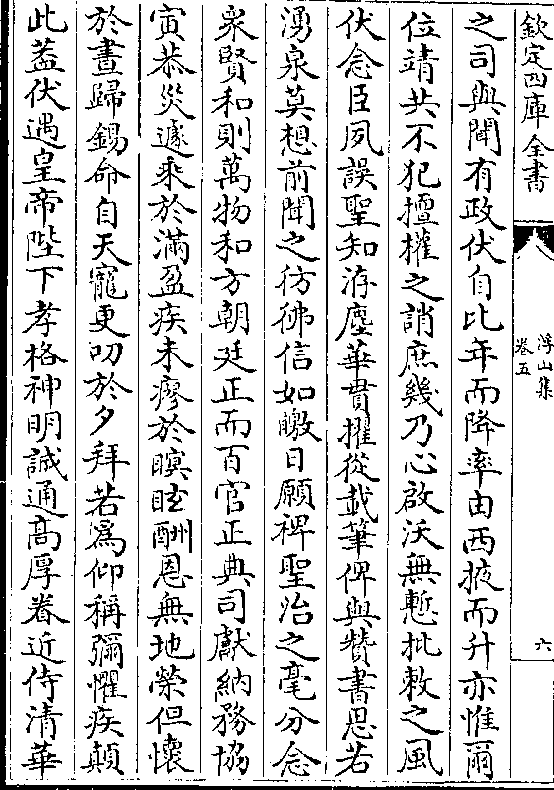 欽定四庫全書
浮山集
卷五
六
之司與聞有政伏自比年而降率由西掖而升亦惟爾
位靖共不犯擅權之誚庶幾乃心啟沃無慙批敕之風
伏念臣夙誤聖知洊塵華貫擢從載筆俾與贊書思若
湧泉莫想前聞之彷彿信如皦日願裨聖治之毫分念
衆賢和則萬物和方朝廷正而百官正典司獻納務協
寅恭災遽乘於滿盈疾未瘳於瞑眩酬恩無地榮但懷
於晝歸錫命自天寵更叨於夕拜若為仰稱彌懼疾顛
此蓋伏遇皇帝陛下孝格神明誠通高厚眷近侍清華